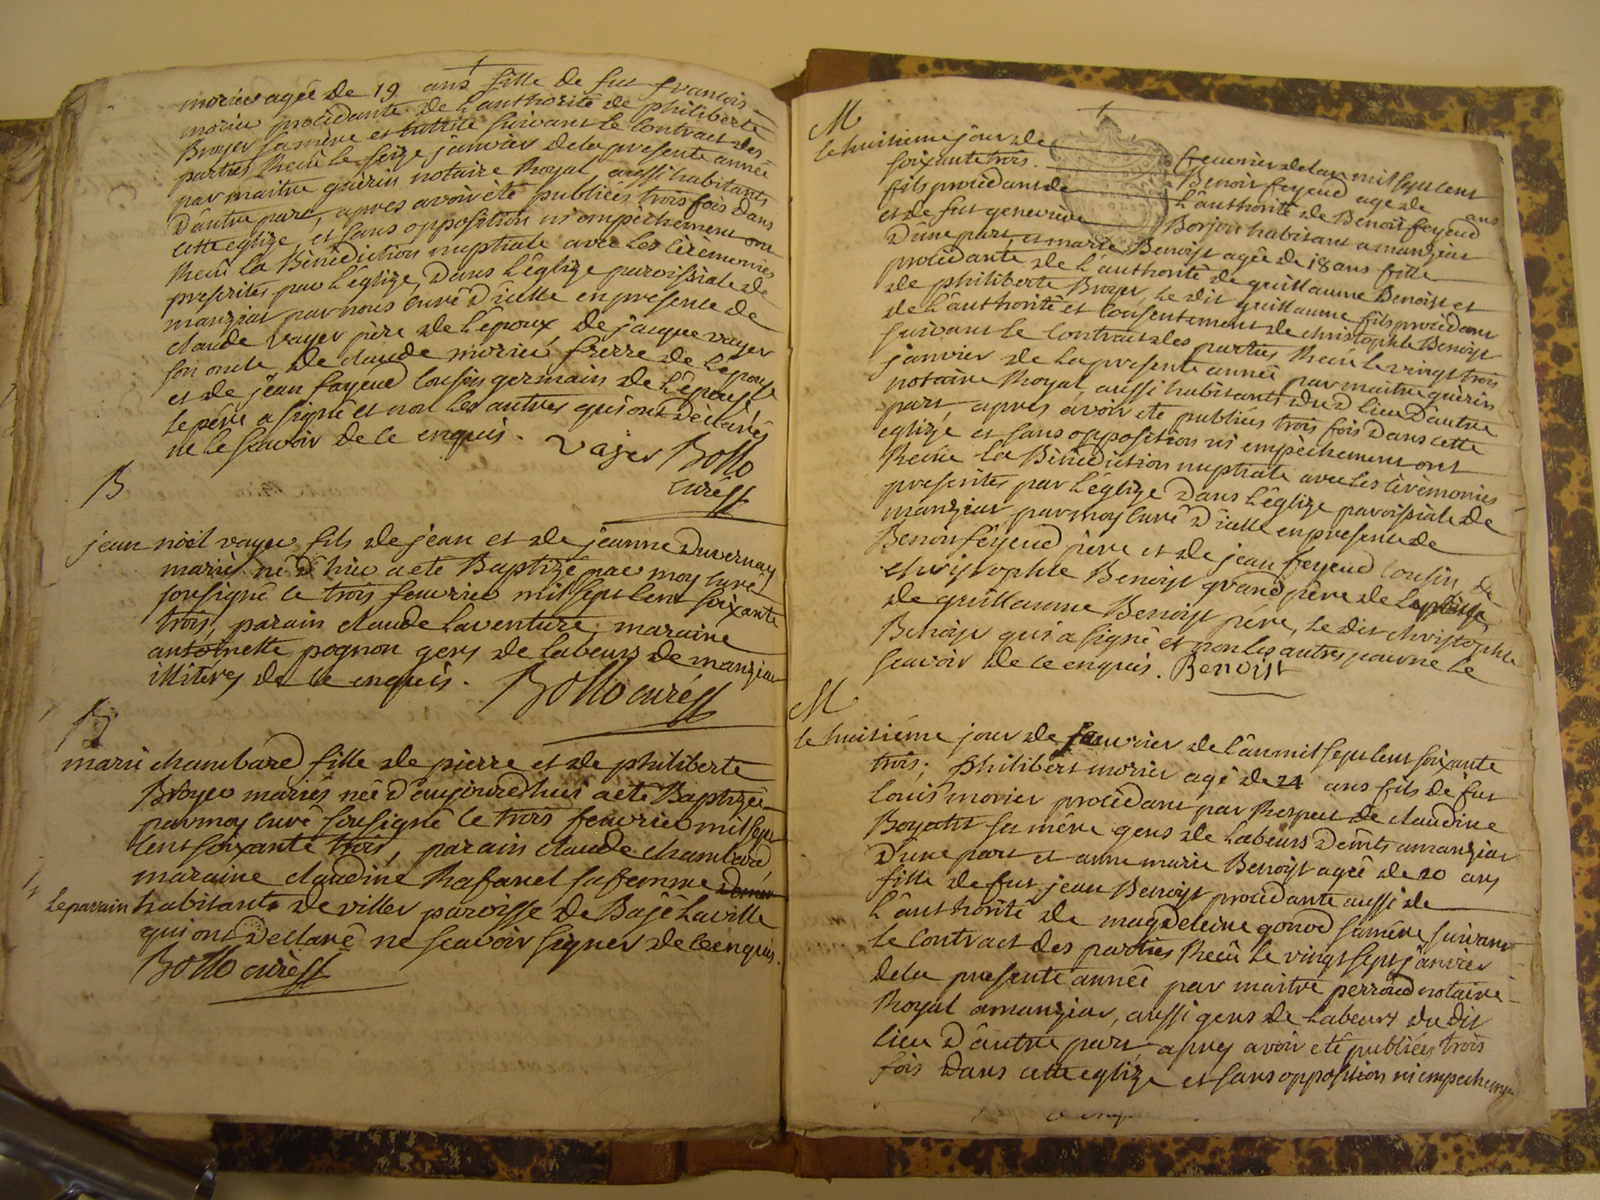 morier agée de 19 ans fille de fut françois
morier procedante de l'authorité de philiberte
Broyer sa mère et tutrice suivant le contract des
parties Recû le seize janvier de la presente année
par maitre guérin notaire Royal aussi habitants
D'autre part, apres avoir été publiées trois fois dans
cette eglize, et sans opposition ni empechement ont
Recû la Bénédiction nuptiale avec les cérémonies
prescrites par l'églize, Dans l'églize paroissiale de
manziat par nous curé D'icelle en presence de
claude vayer père de l'époux de jacque vayer
son oncle, de claude morier frerre de l'epouse
et de jean fayend cousin germain de l'épouse
le père a signé et non les autres qui ont déclaré
ne le scavoir de ce enquis. vajer Botto
curé
B
jean noël vayer fils de jean et de jeanne Duvernay
mariés né d'hier a eté Baptizé par moy curé
sousigné le trois feuvrier mil sept cent soixante
trois, parain claude laventure, maraine
antoinette pognon gens de labeurs de manziat
illitérés de ce enquis. Botto curé
B
marie chambard fille de pierre et de philiberte
Broyer mariés née d'aujourdhui a eté Baptizée
par moy curé sousigné le trois feuvrier mil sept
cent soixante trois, parain claude chambard
maraine claudine Rafanel sa femme
le parrain habitants de viller paroisse de Bajé la ville
qui ont Déclaré ne scavoir signer de ce enquis.
Botto curé
M
le huitieme jour de feuvrier de l'an mil sept cent
soixante trois. Benoit feyend agé de ans
fils procedant de l'authorité de Benoit feyend
et de fut genevieve Borjon habitant a manziat
D'une part, et marie Benoist agée de 18 ans fille
procédante de l'authorité de guillaume Benoist et
de philiberte Broyer, le dit guillaume fils procedant
de l'authorité et consentement de christophle Benoist
suivant le contract des parties Recû le vingt trois
janvier de la presente année par maitre guérin
notaire Royal, aussi habitants du d lieu D'autre
part, apres avoir eté publiées trois fois Dans cette
eglize et sans opposition ni empêchement ont
Recûe la Bénédiction nuptiale avec les cérémonies
prescrites par l'eglize Dans l'églize paroissiale de
manziat par moy curé D'icelle en presence de
Benoit feyend père et de jean feyend cousin, de
christophle Benoist grand père de l'epouse,
de guillaume Benoist père, le dit christophle
Benoist qui a signé et non les autres pour ne le
scavoir de ce enquis. Benoist
M
le huitiéme jour de feuvrier de l'an mil sept cent soixante
trois; philibert morier agé de 24 ans fils de fut
louis morier procédant par Respect de claudine
Boyat sa mère gens de labeurs Demts a manziat
D'une part et anne marie Benoist agée de 20 ans
fille de fut jean Benoist procédante aussi de
l'authorité de magdeleine gonod sa mère suivant
le contract des parties Recû le vingt sept janvier
de la presente année par maitre perroud notaire
Royal a manziat, aussi gens de labeurs du dit
lieu D'autre part apres avoir eté publiées trois
fois Dans cette eglize et sans opposition ni empechement